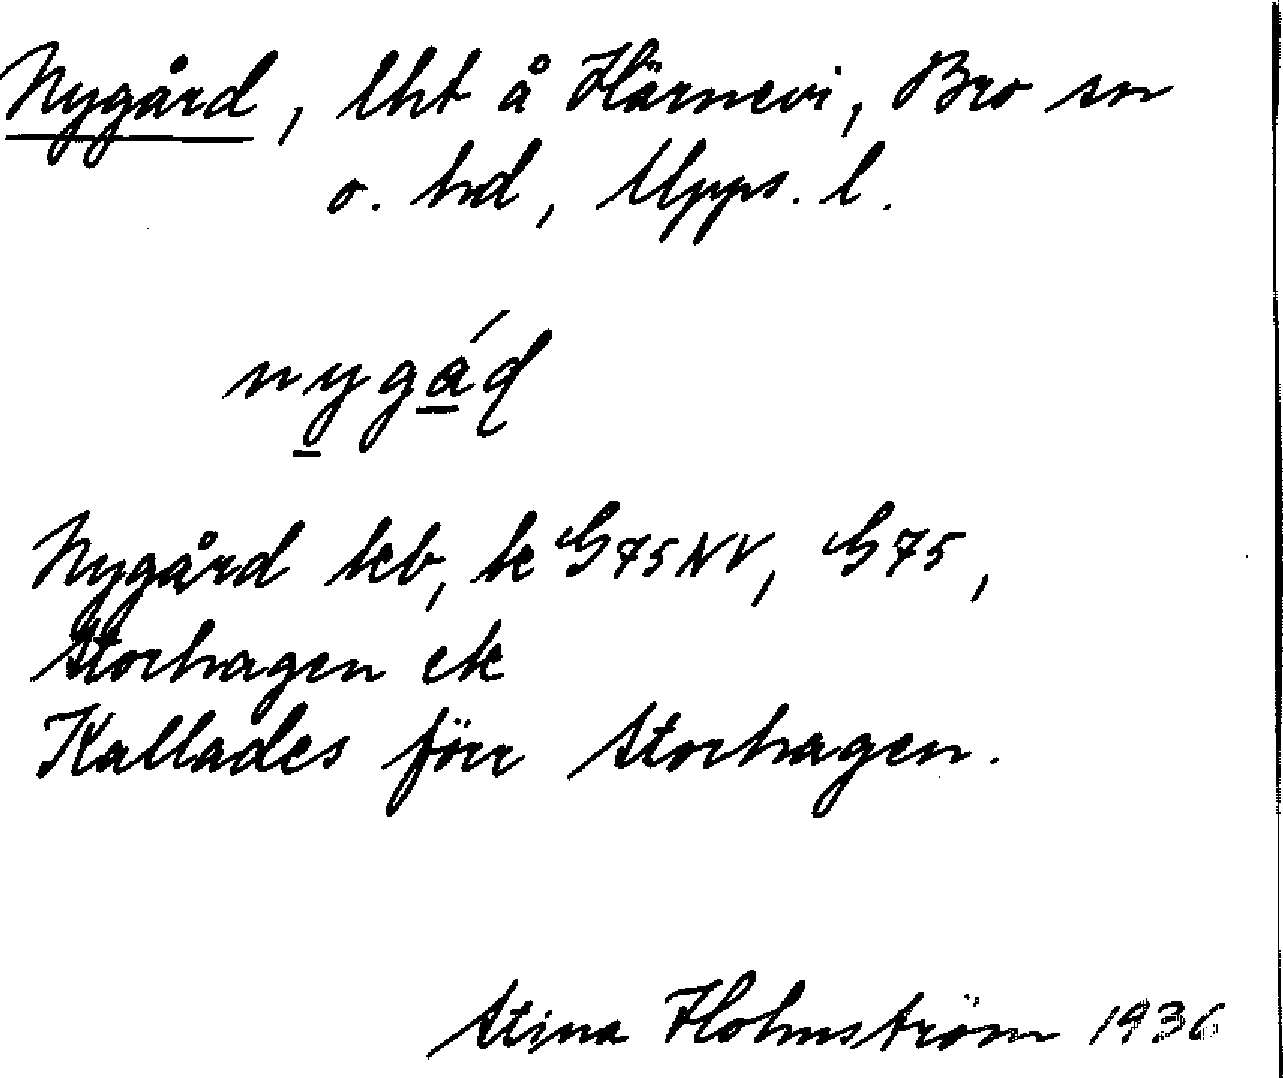 Nygård, lht å Härnevi, Bro sn
o. hd, Upps. l.
nygáɖ
Nygård kb, k G75NV, G75,
Storhagen ek
Kallades förr Storhagen.
Stina Holmström 1936